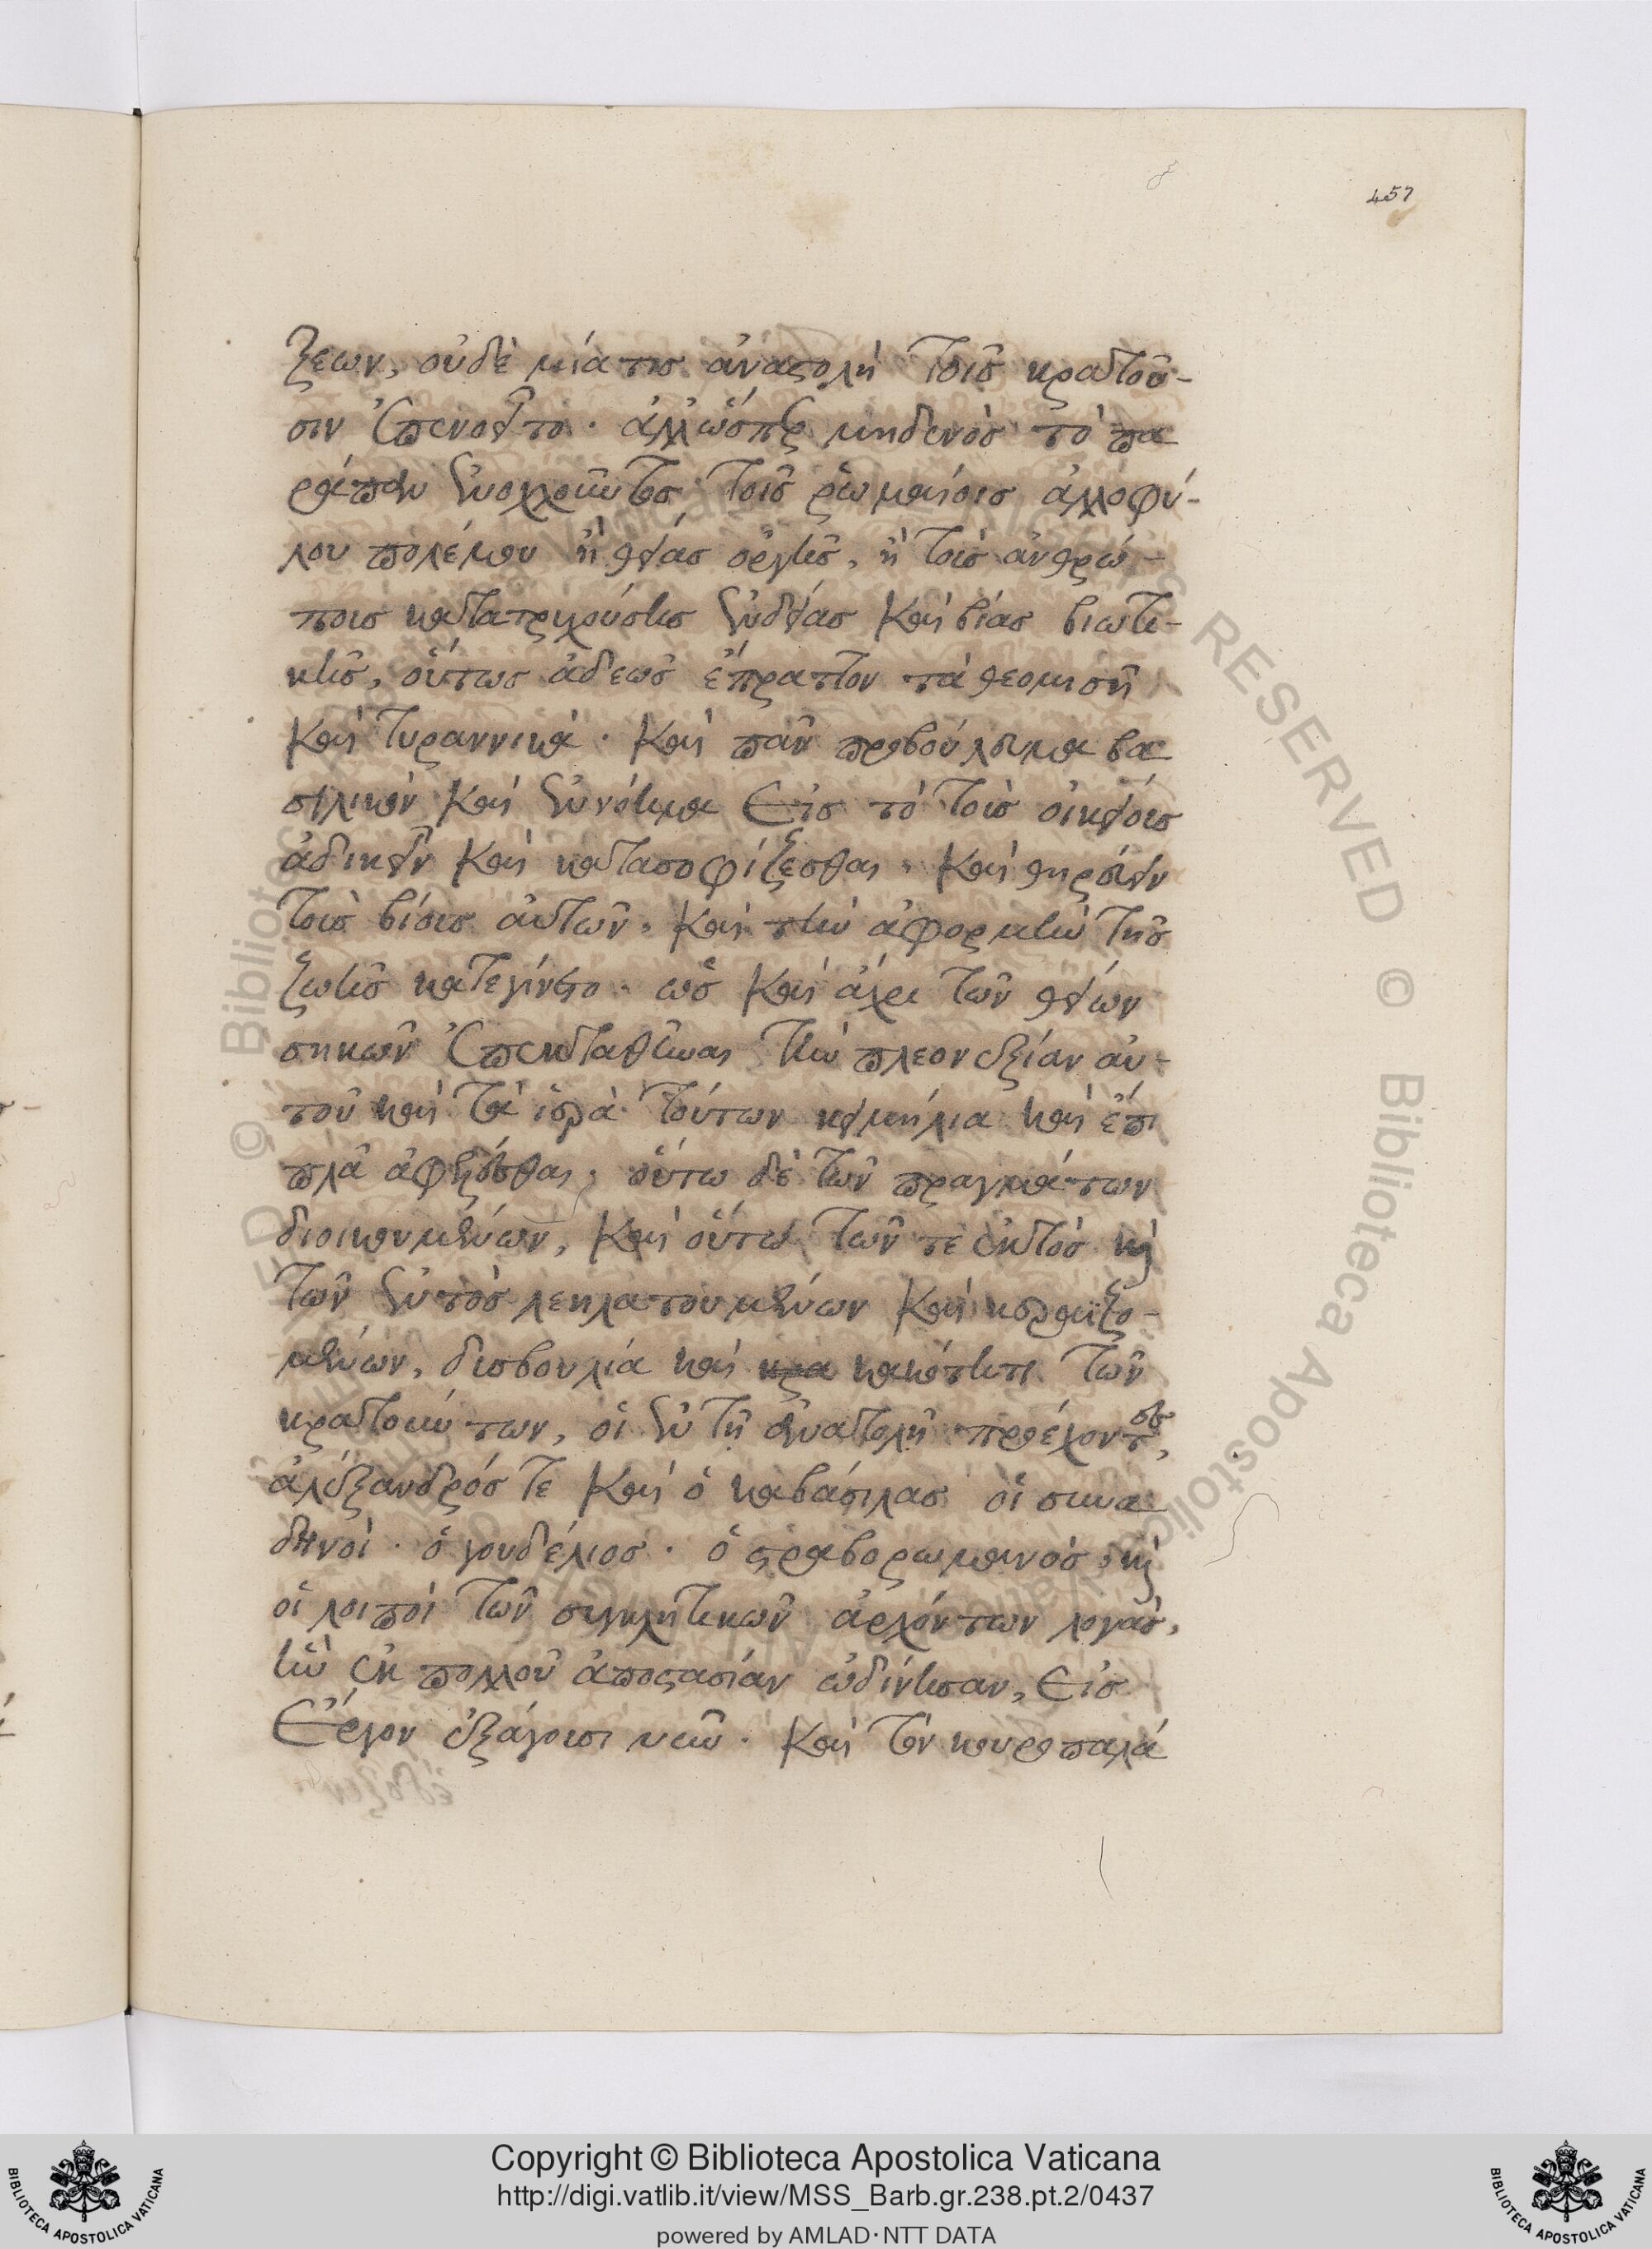 457
ξεων, οὐδὲ μία τις ἀναστολὴ τοῖς κρατοῦ-
σιν ἐπενοεῖτο· ἀλλ' ὥσπερ μηδενὸς τὸ πα
ράπαν ἐνοχλοῦντος τοῖς ῥωμαίοις ἀλλοφύ-
λου πολέμου ἢ θείας ὀργῆς, ἢ τοῖς ἀνθρώ-
ποις κατατρεχούσης ἐνδείας καὶ βίας βιωτι-
κῆς, οὕτως ἀδεῶς ἔπραττον τὰ θεομισῆ
καὶ τυραννικά· καὶ πᾶν προβούλευμα βα
σιλικὸν καὶ ἐννόημα εἰς τὸ τοὺς οἰκείοις
ἀδικεῖν καὶ κατασοφίζεσθαι, καὶ θηρεύειν
τοῖς βίοις αὐτῶν, καὶ τὴν ἀφορμὴν τῆς
ζωῆς κατεγίνετο· ὡς καὶ ἄχρι τῶν θείων
σηκῶν ἐπεκταθῆναι τὴν πλεονεξίαν αὐ-
τοῦ καὶ τὰ ἱερὰ τούτων κειμήλια καὶ ἔπι
πλα ἀφῃρῆσθαι, οὕτω δὲ τῶν πραγμάτων
διοικουμένων, καὶ οὕτω τῶν τε ἐκτὸς καὶ
τῶν ἐντὸς λεηλατουμένων καὶ κεραϊζο-
μένων, δυσβουλία καὶ κρα κακότητι τῶν
κρατούντων, οἱ ἐν τῇ ἀνατολῇ προέχοντες,
ἀλέξανδρός τε καὶ ὁ καβάσιλας οἱ συνα
δηνοὶ· ὁ γουδέλιος· ὁ στραβορωμανὸς, καὶ
οἱ λοιποὶ τῶν συγκλητικῶν ἀρχόντων λογάς,
ἣν ἐκ πολλοῦ ἀποστασίαν ὠδίνησαν, εἰς
ἔργον ἐξάγουσι νῦν· καὶ τὸν κουροπαλά
Copyright © Biblioteca Apostolica Vaticana
http://digi.vatlib.it/view/MSS_Barb.gr.238.pt.2/0437
powered by AMLAD·NTT DATA
BIBLIOTECA APOSTOLICA VATICANA
BIBLIOTECA APOSTOLICA VATICANA